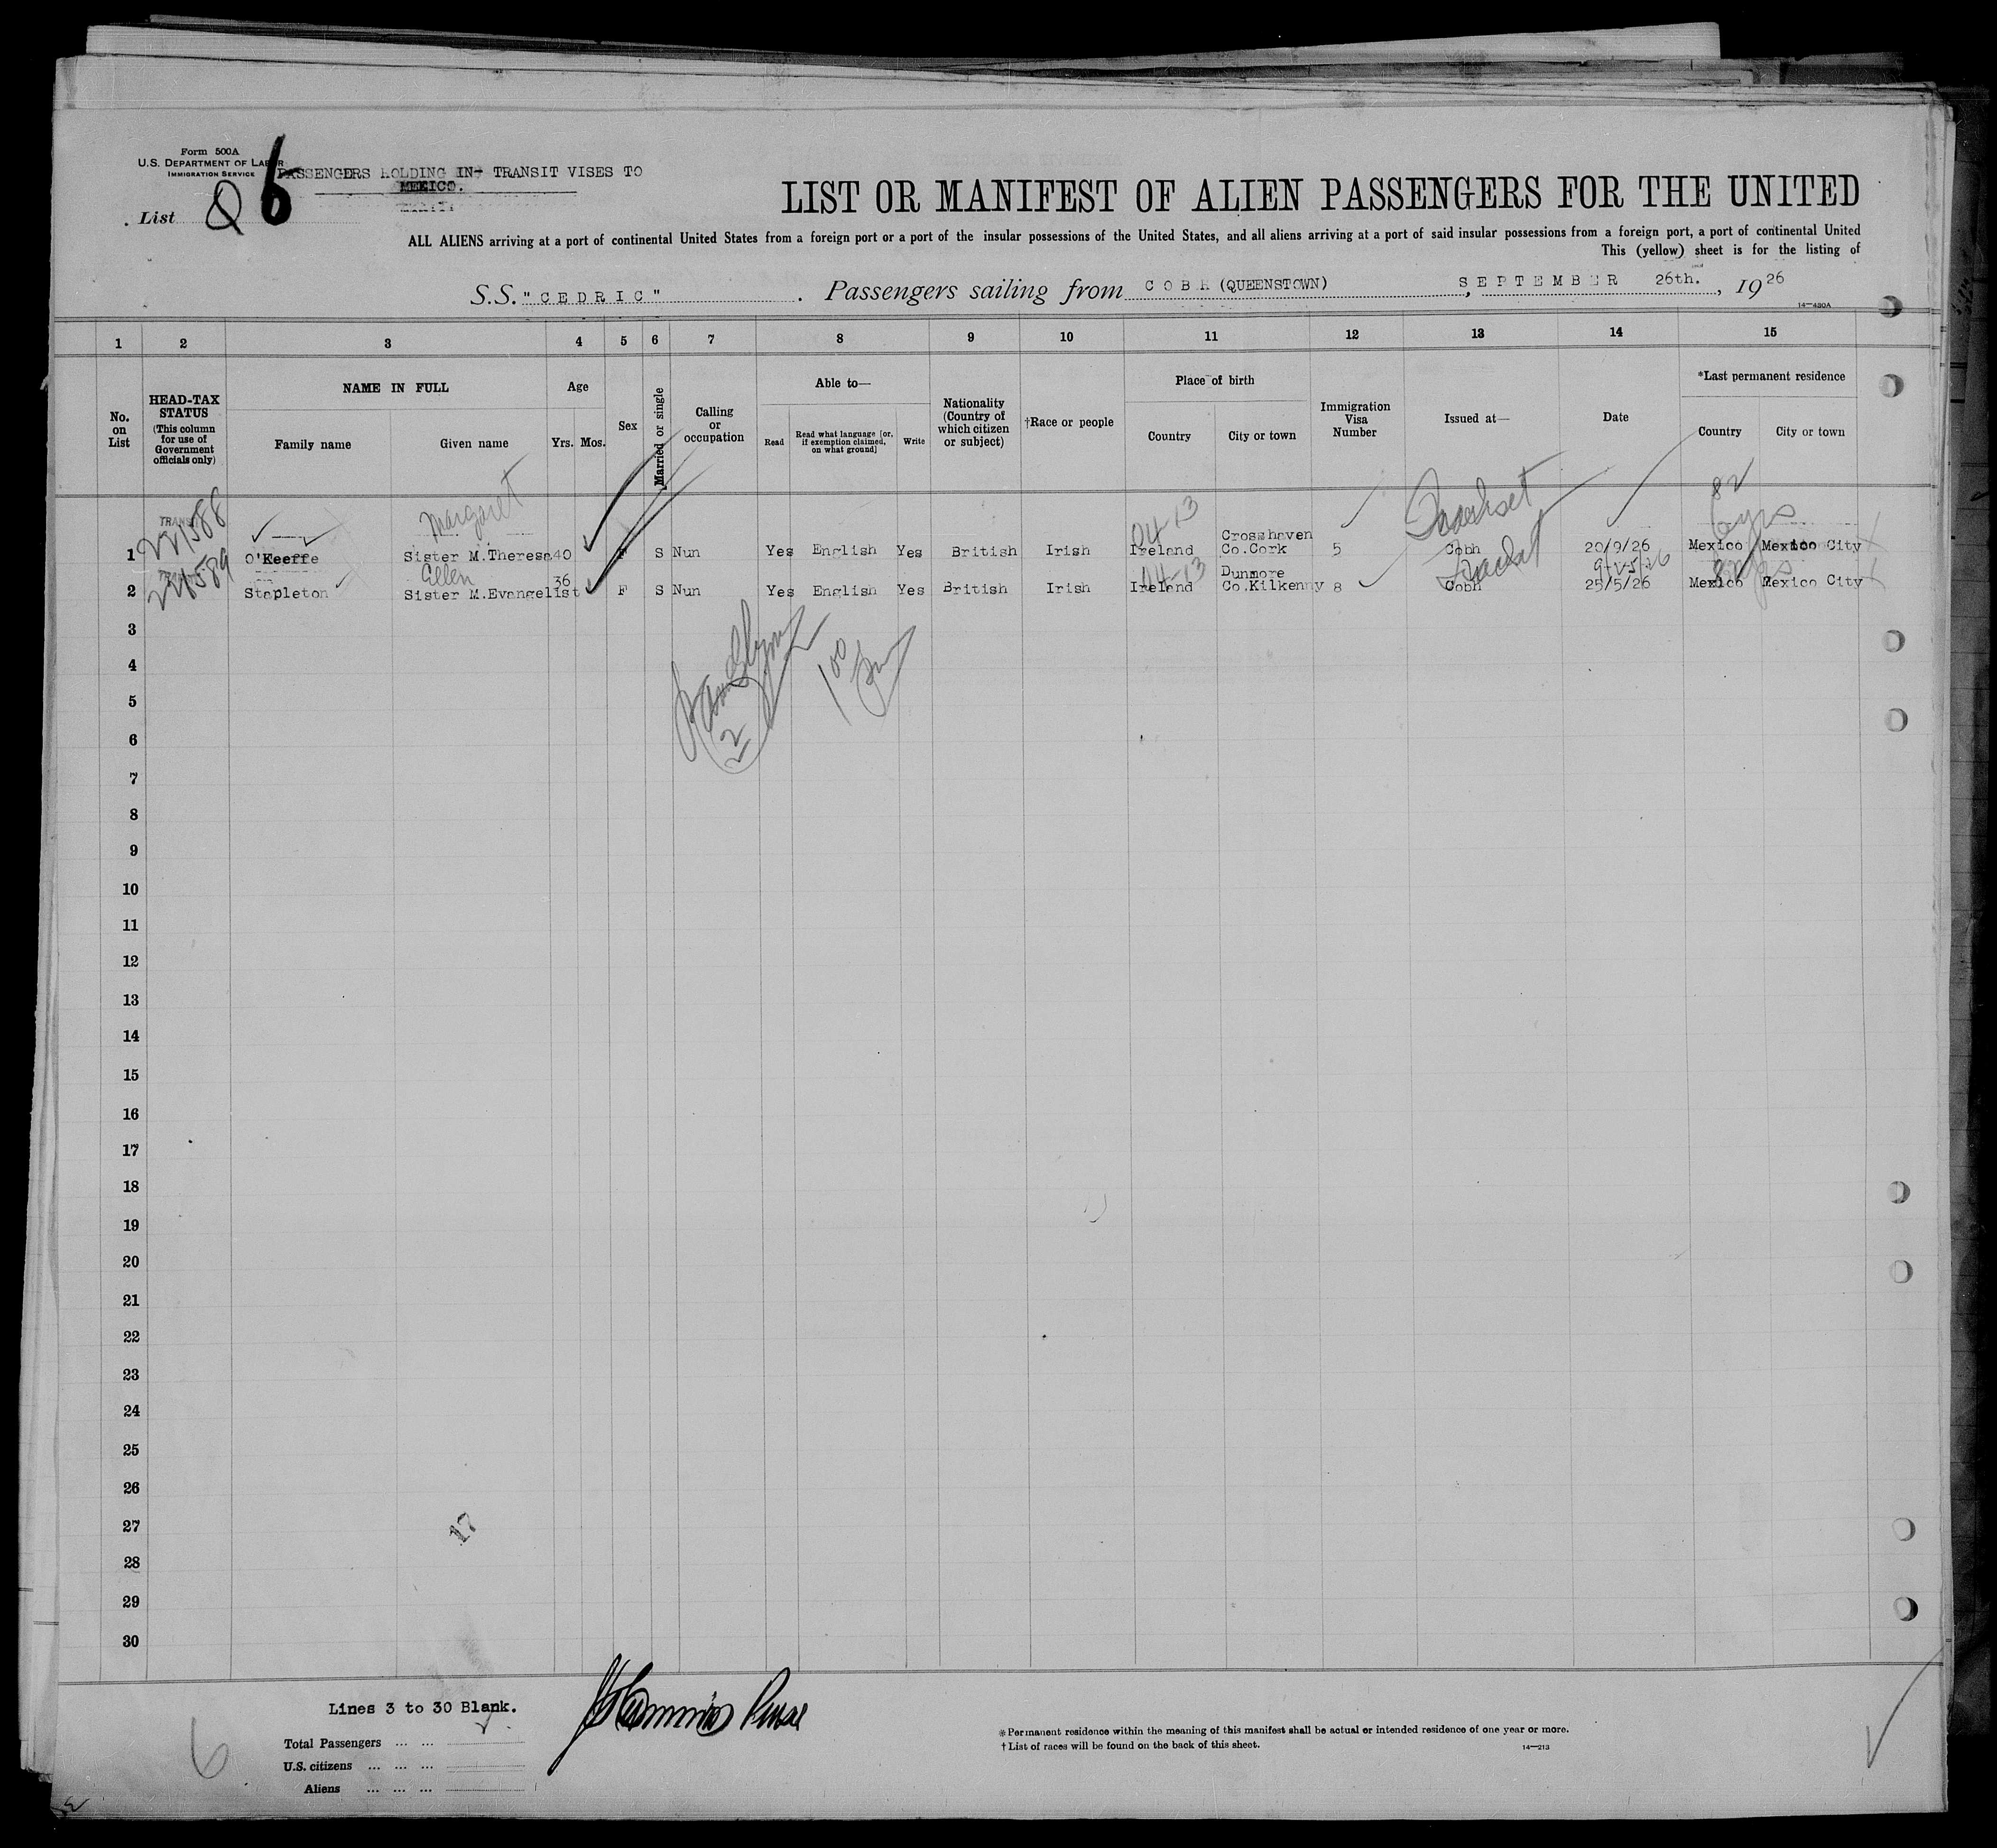 Form 500A
U.S. DEPARTMENT OF LABOR
IMMIGRATION SERVICE
PASSENGERS HOLDING IN- TRANSIT VISES TO
MEXICO.
List Q 6
LIST OR MANIFEST OF ALIEN PASSENGERS FOR THE UNITED
ALL ALIENS arriving at a port of continental United States from a foreign port or a port of the insular possessions of the United States, and all aliens arriving at a port of said insular possessions from a foreign port, a port of continental United
This (yellow) sheet is for the listing of
S.S. "CEDRIC" . Passengers sailing from COBH (QUEENSTOWN) , SEPTEMBER 26th. , 19 26
14—480A
1 2 3 4 5 6 7 8 9 10 11 12 13 14 15
No. on List
HEAD-TAX STATUS
(This column for use of Government officials only)
NAME IN FULL
Family name Given name
Age
Yrs. Mos.
Sex
Married or single
Calling or occupation
Able to—
Read Read what language [or, if exemption claimed, on what ground] Write
Nationality (Country of which citizen or subject)
†Race or people
Place of birth
Country City or town
Immigration Visa Number
Issued at—
Date
*Last permanent residence
Country City or town
221588 Margaret 04-13 82
6 yrs
1 O'Keeffe Sister M.Theresa 40 F S Nun Yes English Yes British Irish Ireland Crosshaven Co.Cork 5 Cobh 20/9/26 Mexico Mexico City
221589 Ellen 04-13
2 Stapleton Sister M.Evangelist 36 F S Nun Yes English Yes British Irish Ireland Dunmore Co.Kilkenny 8 Cobh 25/5/26 Mexico Mexico City
3
4
5
2
6
7
8
9
10
11
12
13
14
15
16
17
18
19
20
21
22
23
24
25
26
27
17
28
29
30
Lines 3 to 30 Blank.
Total Passengers ... ...
U.S. citizens ... ... ...
Aliens ... ... ...
6
* Permanent residence within the meaning of this manifest shall be actual or intended residence of one year or more.
† List of races will be found on the back of this sheet.
14—213